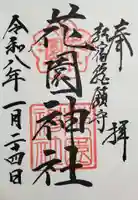 奉拝
新宿総鎮守
花園神社
令和八年一月二十四日